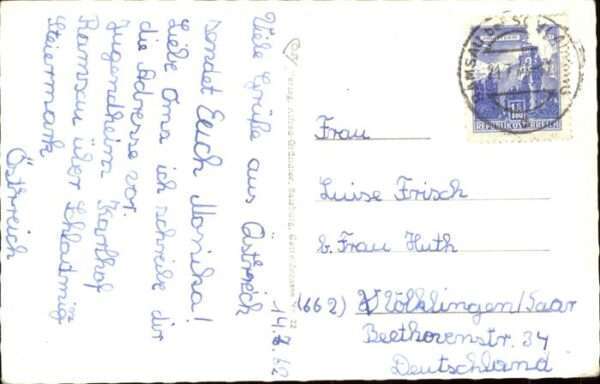 Viele Grüße aus Östreich
sendet Euch Monika!
Liebe Oma ich schreibe dir
die Adresse vor.
Jugendheim Karlhof
Ramsau über Schladmig
Steiermark
Östreich
14.7.62
Frau
Luise Frisch
b. Frau Huth
(662) Völklingen/Saar
Beethovenstr. 34
Deutschland
RAMSAU
REPUBLIK ÖSTERREICH